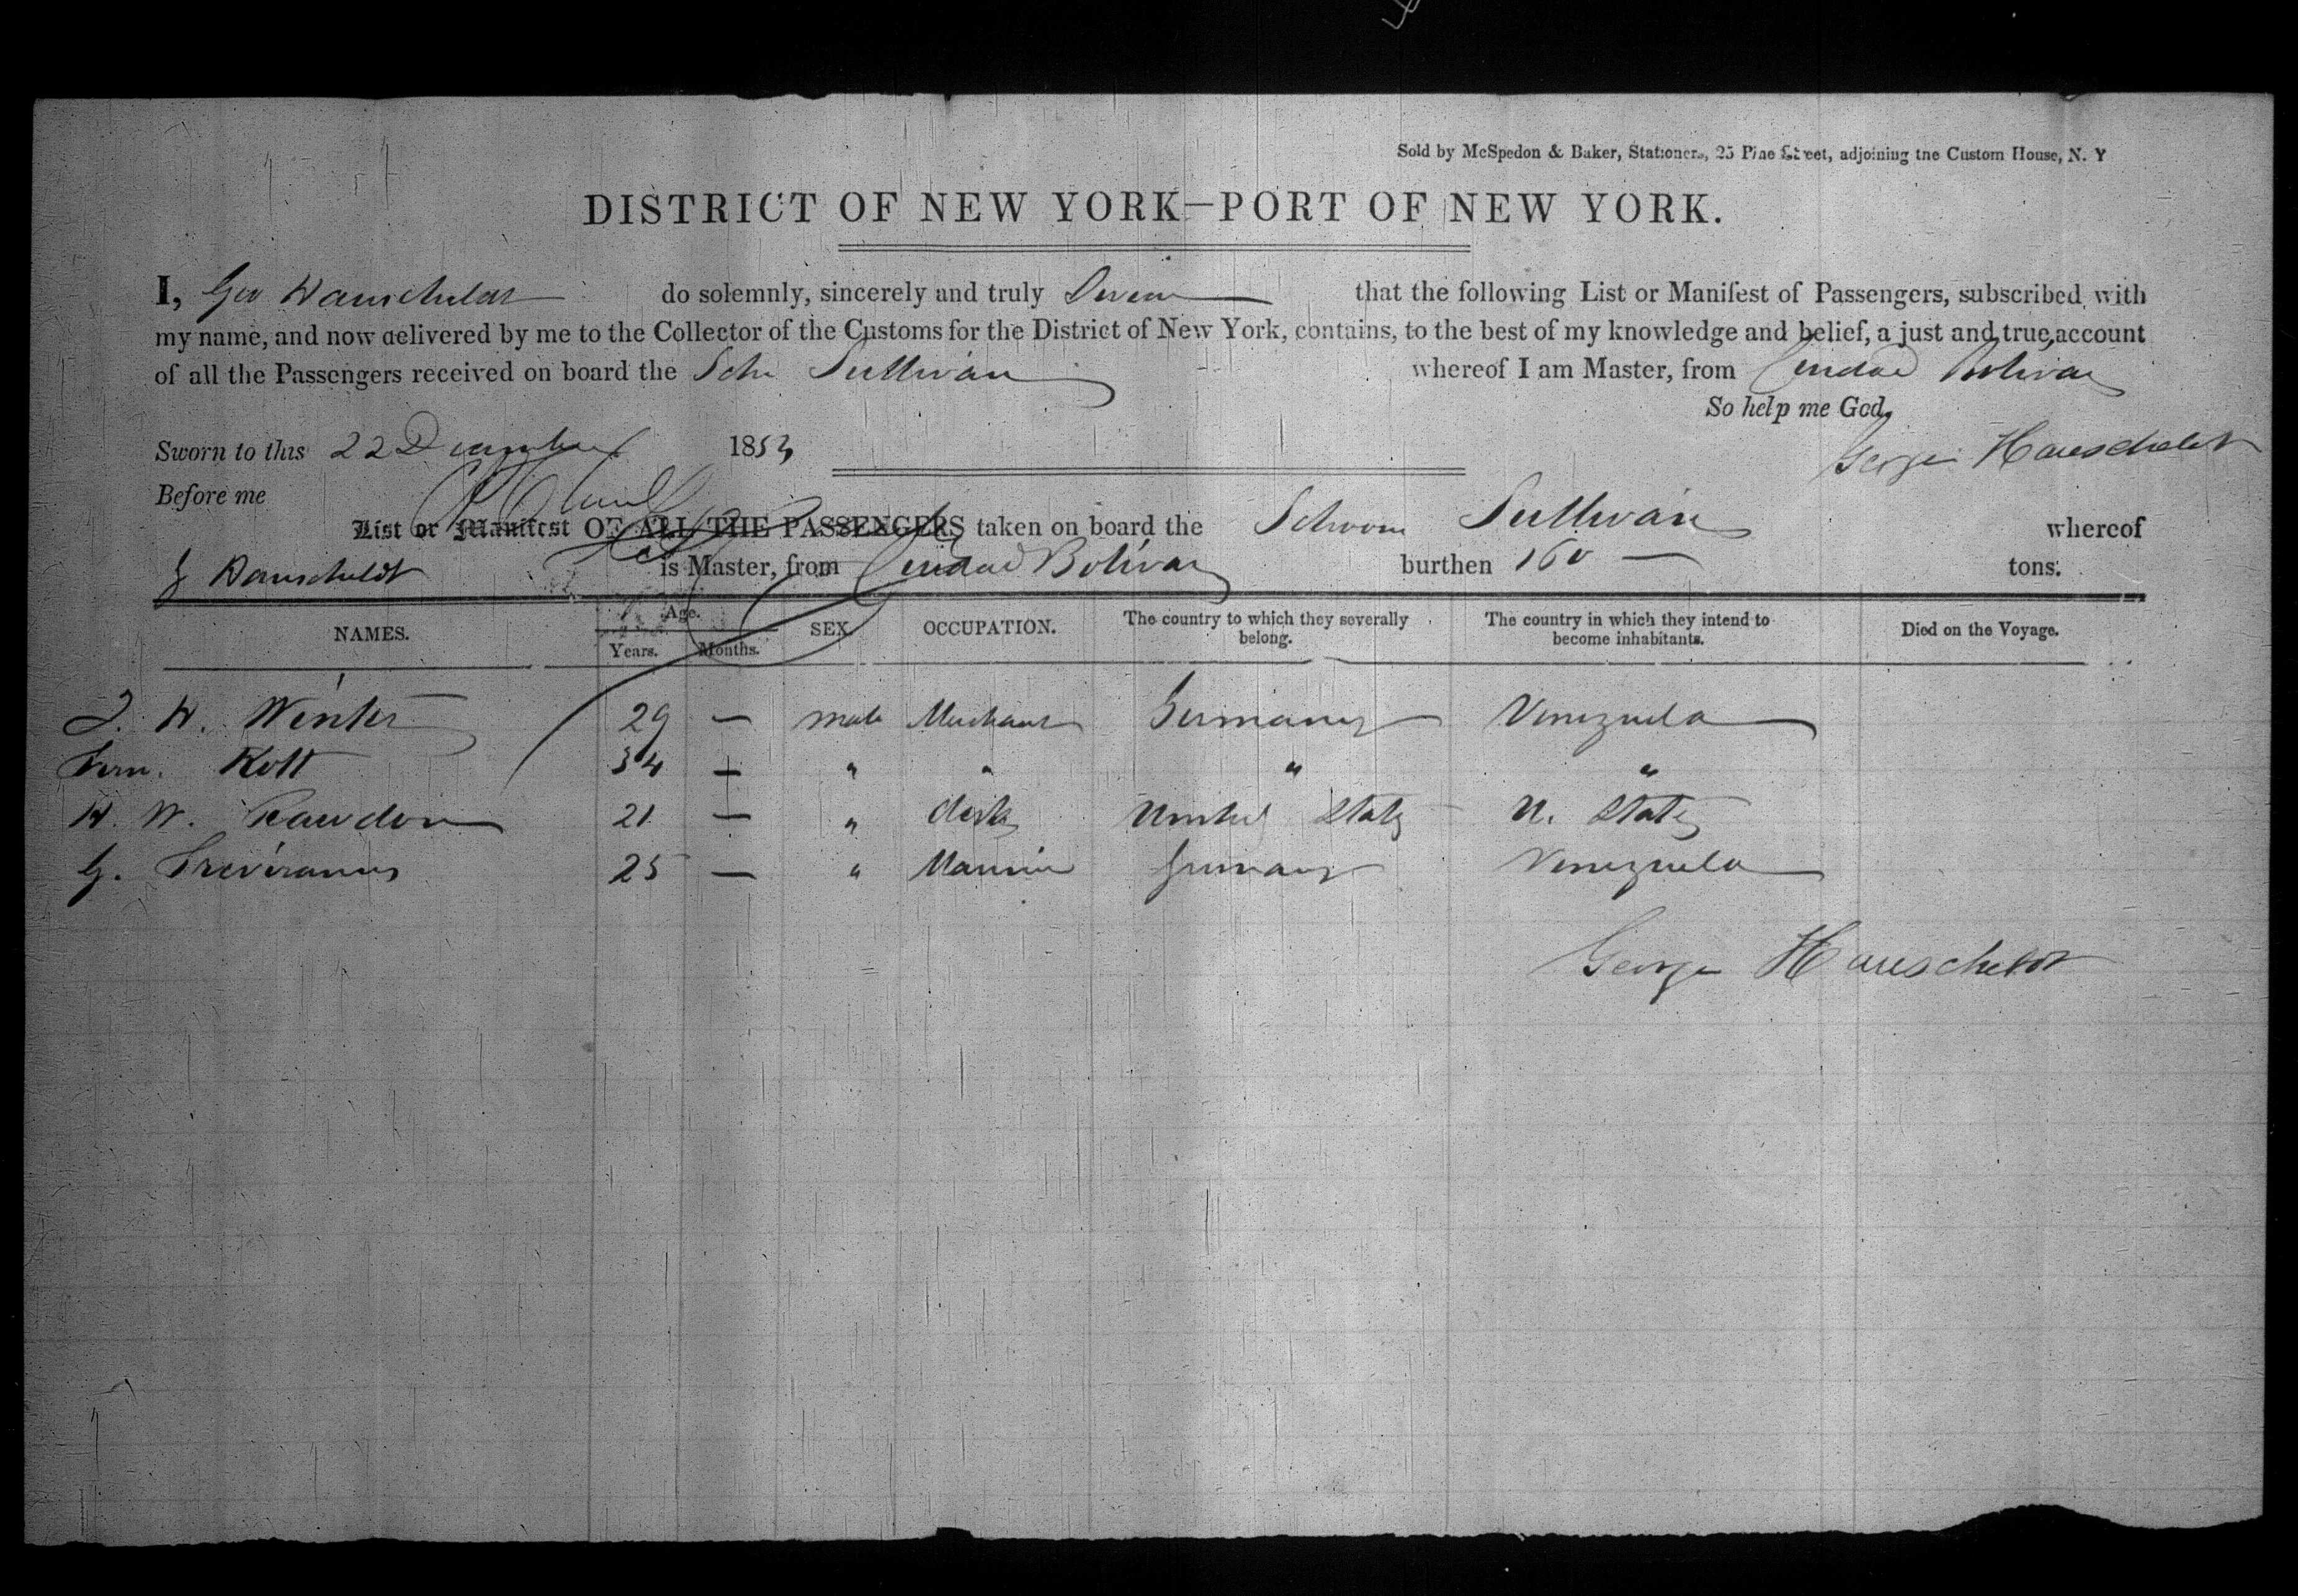 Sold by McSpedon & Baker, Stationers, 25 Pine Street, adjoining the Custom House, N. Y
DISTRICT OF NEW YORK—PORT OF NEW YORK.
I, Geo Hauscheldt do solemnly, sincerely and truly Swear that the following List or Manifest of Passengers, subscribed with
my name, and now delivered by me to the Collector of the Customs for the District of New York, contains, to the best of my knowledge and belief, a just and true account
of all the Passengers received on board the Schr Sullivan whereof I am Master, from Ciudad Bolivar
So help me God.
Sworn to this 22 December 1853 George Hauscheldt
Before me
List or Manifest OF ALL THE PASSENGERS taken on board the Schoon Sullivan whereof
G Hauscheldt is Master, from Ciudad Bolivar burthen 160 — tons.
NAMES. Age. Years. Months. SEX. OCCUPATION. The country to which they severally belong. The country in which they intend to become inhabitants. Died on the Voyage.
J. H. Winter 29 — male Merchant Germany Venezuela
Fern. Kott 34 — " " " "
H. W. Rawdon 21 — " Clerk United States U. States
G. Treviranus 25 — " Marine Germany Venezuela
George Hauscheldt